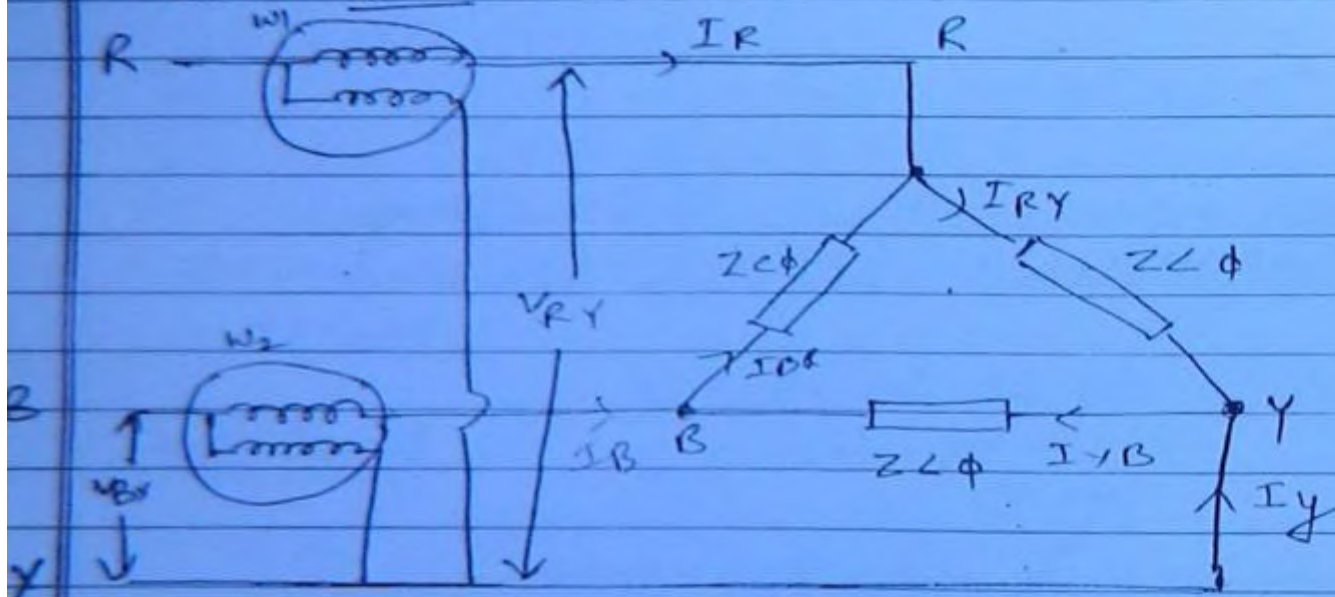 W1
R
IR
R
IRY
Z<φ
Z<φ
VRY
W2
IBR
B
IB
B
Z<φ
IYB
Y
VBY
Iy
Y